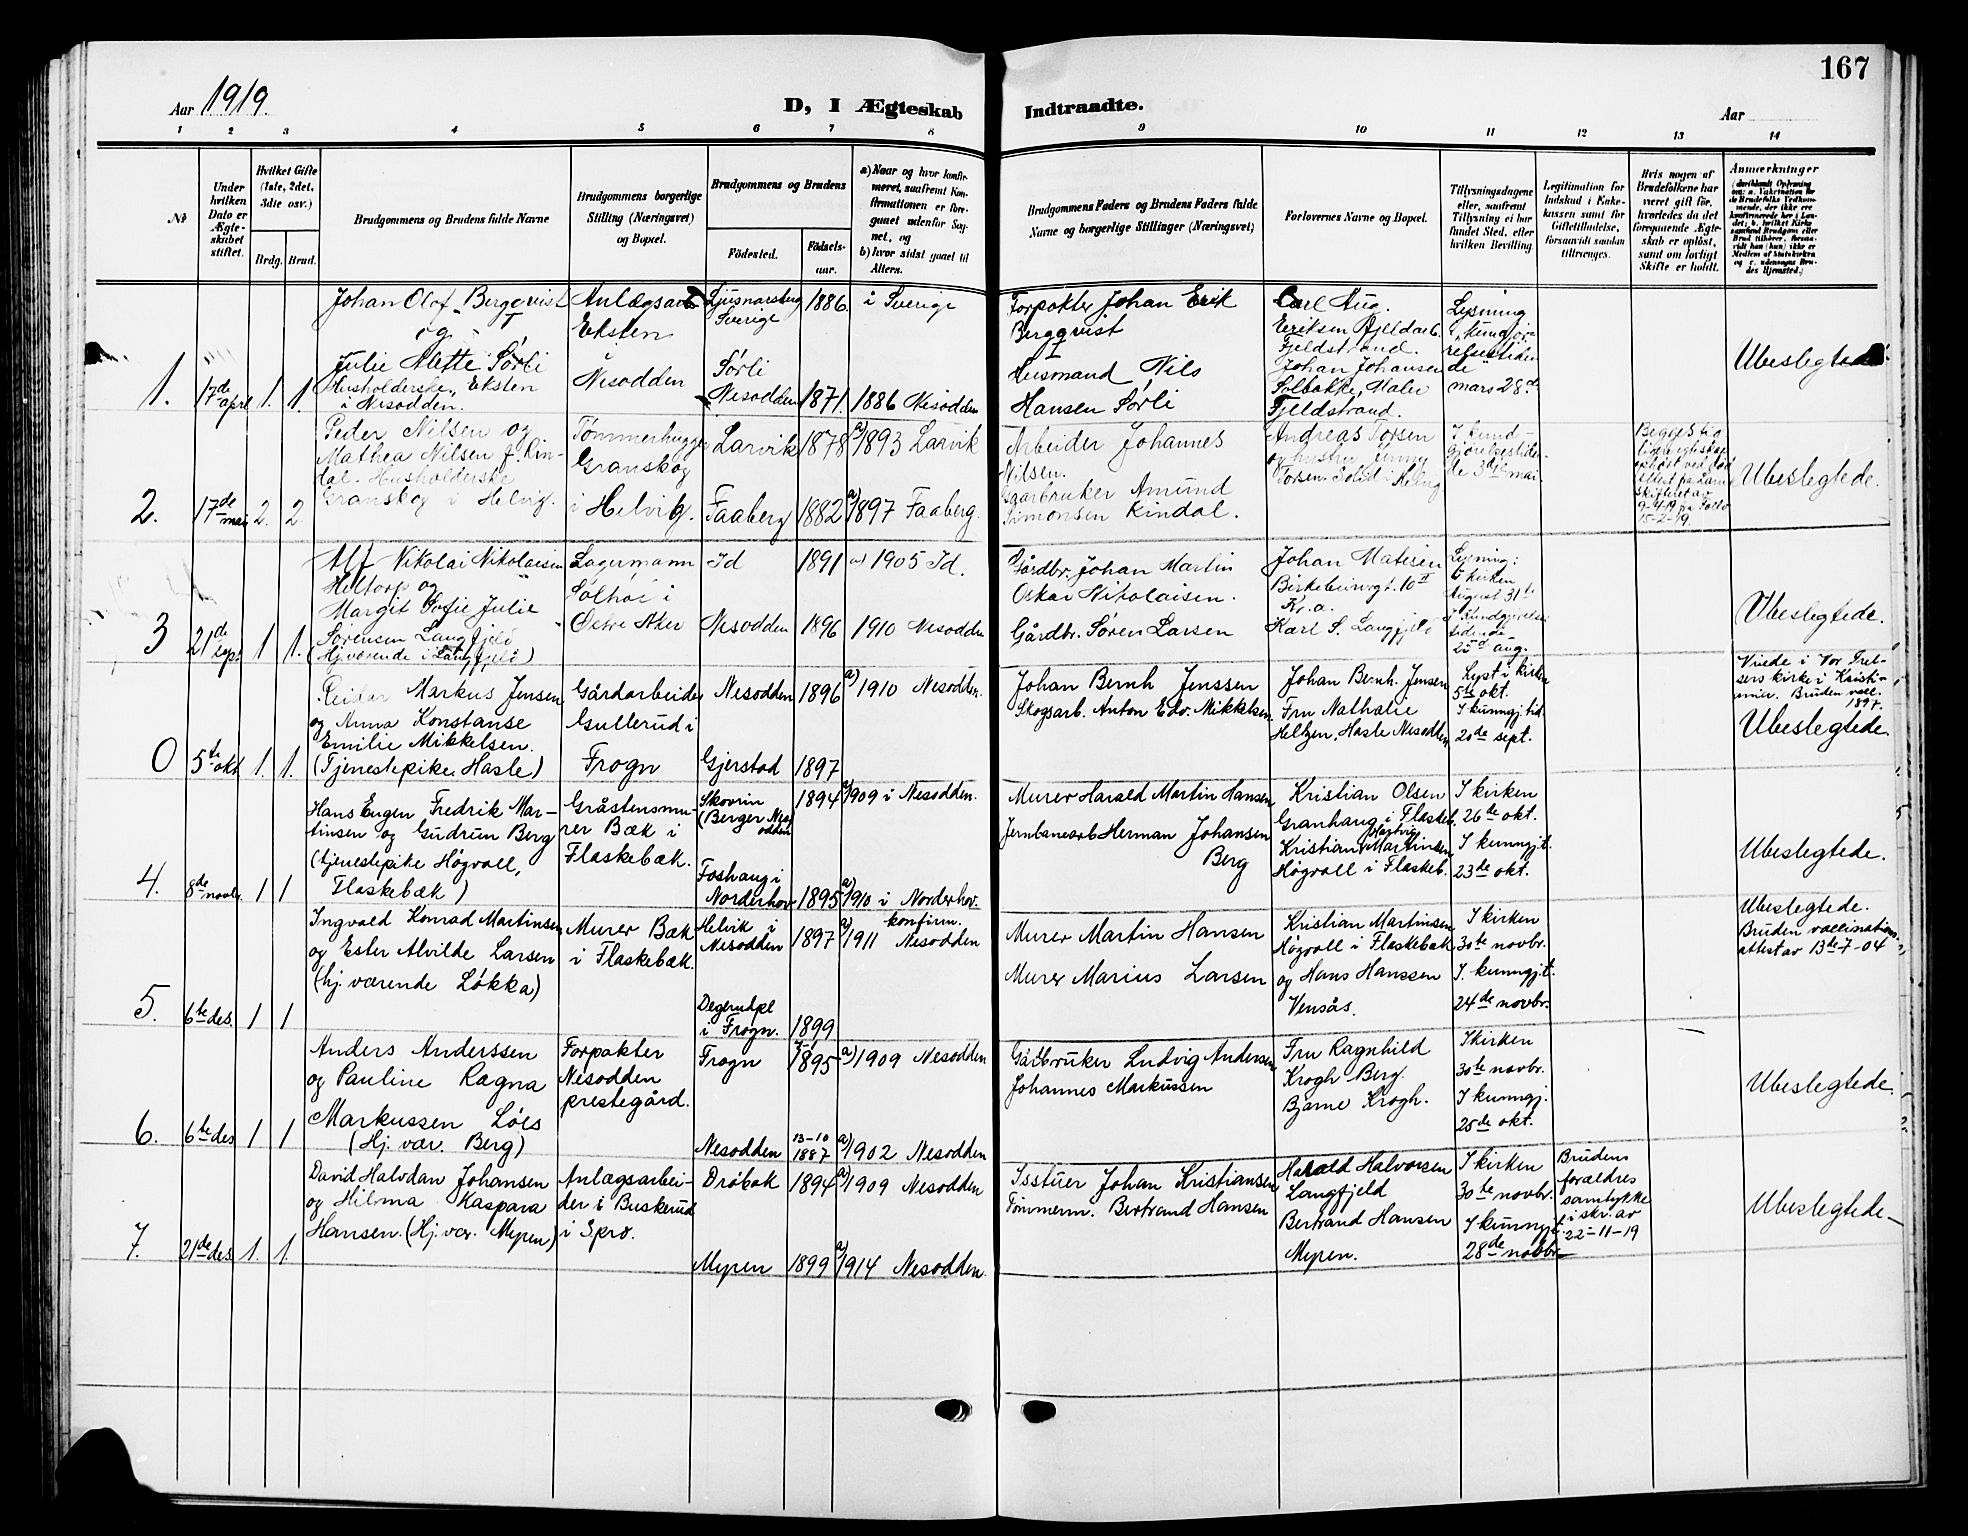 167
Aar 1919.
D, I Ægteskab Indtraadte.
Aar
1 2 3 4 5 6 7 8 9 10 11 12 13 14
No
Under hvilken Dato er Ægteskabet stiftet.
Hvilket Gifte (1ste, 2det, 3die osv.)
Brdg. Brud.
Brudgommens og Brudens fulde Navne
Brudgommens borgerlige Stilling (Næringsvei) og Bopæl.
Brudgommens og Brudens
Födested.
Födselsaar.
a) Naar og hvor konfirmeret, saafremt Konfirmationen er foregaaet udenfor Sognet, og
b) hvor sidst gaaet til Alters.
Brudgommens Faders og Brudens Faders fulde Navne og borgerlige Stillinger (Næringsvei)
Forlovernes Navne og Bopæl.
Tillysningsdagene eller, saafremt Tillysning ei har fundet Sted, efter hvilken Bevilling.
Legitimation for Indskud i Enkekassen samt for Giftetilladelse, forsaavidt saadan tiltrænges.
Hvis nogen af Brudefolkene har været gift för, hvorledes da det foregaaende Ægteskab er oplöst, samt om lovligt Skifte er holdt.
Anmærkninger
1. 17de april 1. 1.
Johan Olof Bergqvist
og
Julie Alette Sørli
Husholderske, Eksten
i Nesodden.
Anlægsarb.
Eksten
i
Nesodden
Ljusnarsberg
Sverige
1886.
i Sverige
Sørli
Nesodden 1871. 1886 Nesodden
Forpakter Johan Erik
Bergqvist
Husmand Nils
Hansen Sørli
Carl Aug.
Eriksen Fjeldarb.
Fjeldstrand.
Johan Johansen
Solbakke, Maler
Fjeldstrand.
Lysning
i "kundgjø-
relsestiden
de"
mars 28de
Ubeslegtede
2. 17de mai 2. 2
Peder Nilsen og
Mathea Nilsen f. Kin-
dal. Husholderske
Granskog i Helvig.
Tømmerhugger
Granskog
i Helvig.
Larvik 1878 a) 1893 Larvik
Faaberg 1882 a) 1897 Faaberg.
Arbeider Johannes
Nilsen.
Gaarbruker Amund
Simonsen Kindal.
Andreas Torsen
og hustru Jenny
Torsen Solid i Helvig
I kund-
gjørelsestiden-
de 3die mai.
Begges tid
ligere egteskap
ophøst ved død
9-4-19
15-2-19.
Ubeslegtede.
3 21de sept 1 1.
Alf Nikolai Nikolaisen
Heltorp og
Margit Sofie Julie
Sørensen Langfjeld
(Hj.værende i Langfjeld)
Lagermann
Solhøi i
Østre Aker
Id 1891 a) 1905 Id.
Nesodden 1896 1910 Nesodden
Gårdbr. Johan Martin
Oskar Nikolaisen.
Gårdbr. Søren Larsen
Johan Matisen
Birkebeinergt. 10 II
Kr.a.
Karl S. Langfjeld
Lysning:
i kirken
August 31te
I Kundgjørelses
tidende
25de aug.
Ubeslegtede.
0 5te okt 1. 1.
Reidar Markus Jensen
og Anna Konstanse
Emilie Mikkelsen.
(Tjenestepike, Hasle)
Gårdarbeider
Gullerud i
Frogn
Nesodden 1896 a) 1910 Nesodden.
Gjerstad 1897
Johan Bernh Jenssen
Skogsarb. Anton Edv. Mikkelsen
Johan Bernh. Jensen
Fru Nathalie
Heltzen, Hasle Nesodden
Lyst i kirken
5te okt.
I kunngj.tid.
20de sept.
Viede i Vor Frel-
sers kirke i Kristi-
ania. Bruden vacc.
1897.
Ubeslegtede.
4. 8de novbr. 1 1
Hans Eugen Fredrik Mar-
tinsen og Gudrun Berg
(tjenestepike Høgvoll,
Flaskebæk)
Gråstensmu-
rer Bæk i
Flaskebæk.
Skovrin
(Berger Nes
odden
1894 a) 1909 i Nesodden.
Foshaug i
Norderhov 1895 a) 1910 i Norderhov.
konfirm.
Murer Harald Martin Hansen
Jernbanearb Herman Johansen
Berg
Kristian Olsen
Granhaug i Flaskeb.
Kristian Hartvig Martinsen
Høgvoll i Flaskeb.
I kirken
26te okt.
I kunngj.t.
23de okt.
Ubeslegtede.
5. 6te des. 1 1
Ingvald Konrad Martinsen
og Ester Alvilde Larsen
(hj. værende Løkka)
Murer Bæk
i Flaskebæk.
Helvik i
Nesodden 1897 a) 1911 Nesodden
Degerudpl
i Frogn. 1899
Murer Martin Hansen
Murer Marius Larsen
Kristian Martinsen
Høgvoll i Flaskebæk
og Hans Hanssen
Vensås.
I kirken
30te novbr.
I. kunngj.t.
24de novbr.
Ubeslegtede.
Bruden vaccinations
attest av 13te-7-04
6. 6te des 1 1
Anders Anderssen
og Pauline Ragna
Markussen Løes
(Hj. vær. Berg)
Forpakter
Nesodden
prestegård.
Frogn 1895 a) 1909 Nesodden
Nesodden 13-10 1887 a) 1902 Nesodden
Gårbruker Ludvig Andersen
Johannes Markussen
Fru Ragnhild
Krogh Berg.
Bjarne Krogh.
I kirken
30te novbr.
I kunngj.
25de okt.
Ubeslegtede.
7. 21de des. 1. 1
David Halvdan Johansen
og Hilma Kaspara
Hansen. (Hj. vær. Myren)
Anlægsarbei-
der i Buskerud
i Spro.
Drøbak 1894 a) 1909 Nesodden
Myren 1899 a) 1914 Nesodden.
Isstuer Johan Kristiansen
Tømmerm. Bertrand Hansen
Harald Halvorsen
Langfjeld
Bertrand Hansen
Myren.
I kirken
30te novbr.
I kunngj.t.
28de novbr.
Brudens
forældres
samtykke
i skr. av
22-11-19
Ubeslegtede